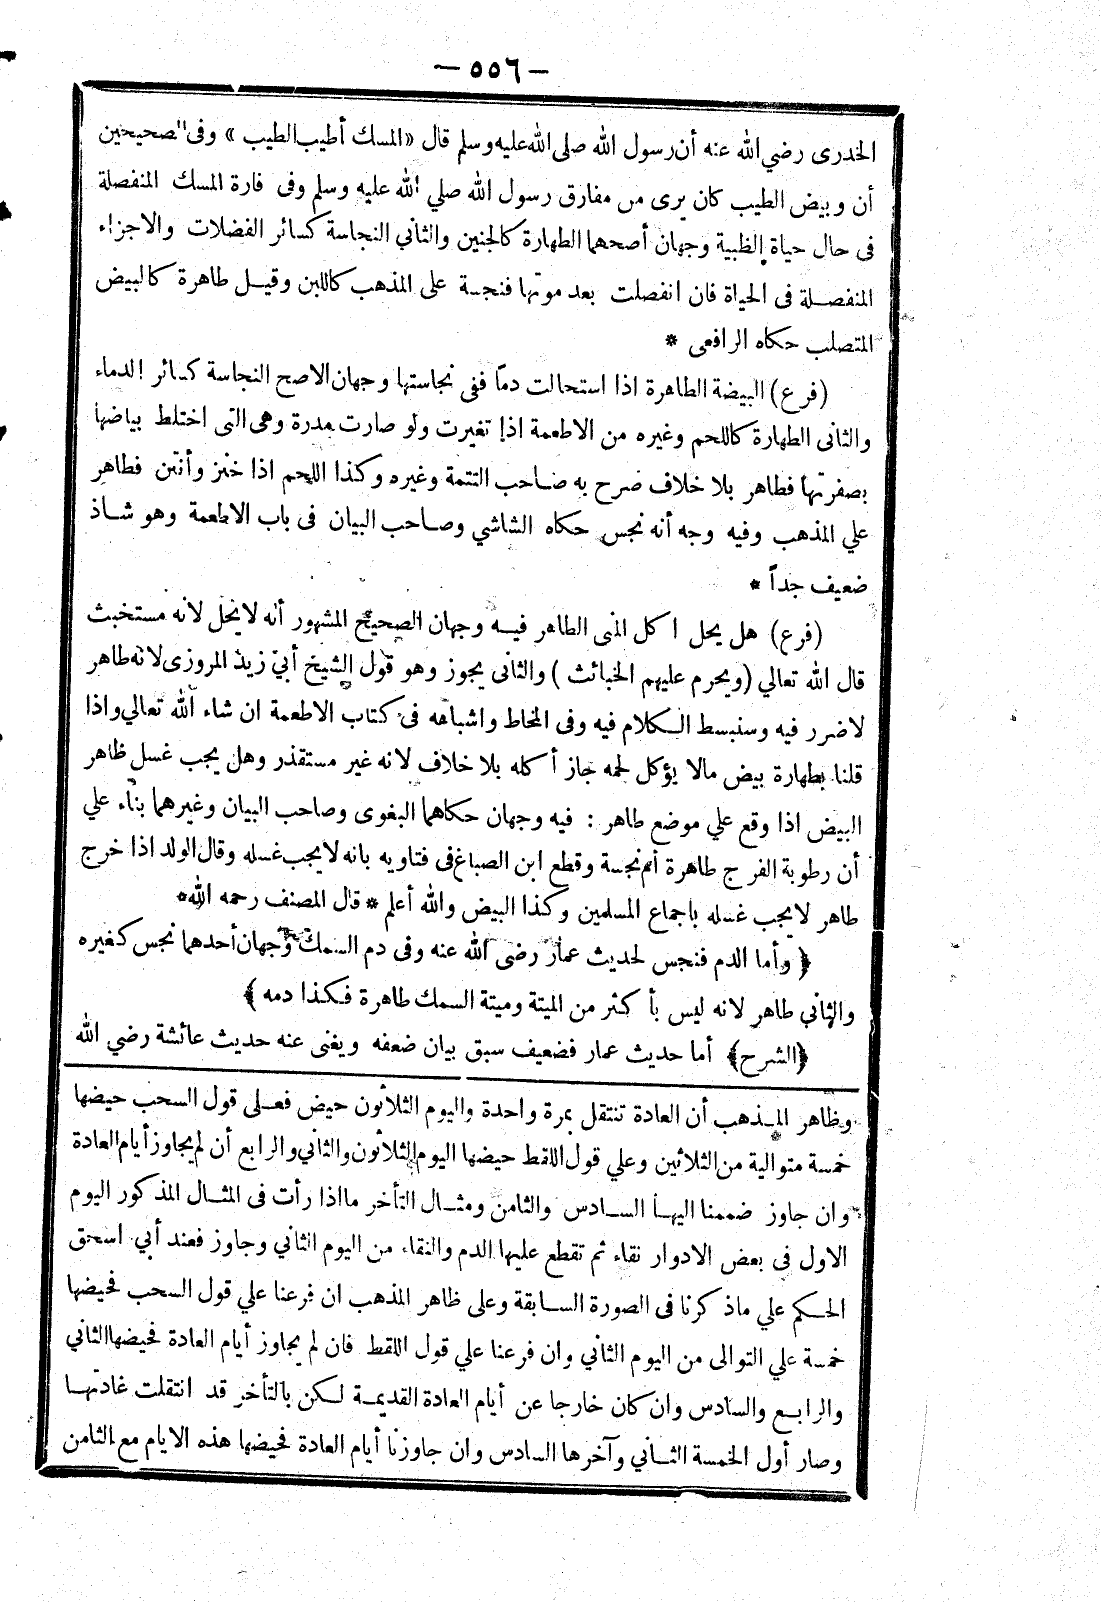 — ٥٥٦ —
الخدرى رضي الله عنه أن رسول الله صلى الله عليه وسلم قال «المسك أطيب الطيب» وفى الصحيحين
أن وبيض الطيب كان يرى من مفارق رسول الله صلي الله عليه وسلم وفى فارة المسك المنفصلة
فى حال حياة الظبية وجهان أصحهما الطهارة كالجنين والثاني النجاسة كسائر الفضلات والاجزاء
المنفصلة فى الحياة فان انفصلت بعد موتها فنجسة على المذهب كاللبن وقيل طاهرة كالبيض
المتصلب حكاه الرافعى *
(فرع) البيضة الطاهرة اذا استحالت دمًا ففى نجاستها وجهان الاصح النجاسة كسائر الدماء
والثانى الطهارة كاللحم وغيره من الاطعمة اذا تغيرت ولو صارت مدرة وهى التى اختلط بياضها
بصفرتها فطاهر بلا خلاف صرح به صاحب التتمة وغيره وكذا اللحم اذا خنز وأنتن فطاهر
علي المذهب وفيه وجه أنه نجس حكاه الشاشي وصاحب البيان فى باب الاطعمة وهو شاذ
ضعيف جداً *
(فرع) هل يحل اكل المنى الطاهر فيه وجهان الصحيح المشهور أنه لايحل لانه مستخبث
قال الله تعالي (ويحرم عليهم الخبائث) والثانى يجوز وهو قول الشيخ أبي زيد المروزى لانه طاهر
لاضرر فيه وسنبسط الكلام فيه وفى المخاط واشباهه فى كتاب الاطعمة ان شاء الله تعالي واذا
قلنا بطهارة بيض مالا يؤكل لحمه جاز أكله بلا خلاف لانه غير مستقذر وهل يجب غسل ظاهر
البيض اذا وقع علي موضع طاهر : فيه وجهان حكاهما البغوى وصاحب البيان وغيرهما بناء علي
أن رطوبة الفرج طاهرة أم نجسة وقطع ابن الصباغ فى فتاويه بانه لايجب غسله وقال الولد اذا خرج
طاهر لايجب غسله باجماع المسلمين وكذا البيض والله أعلم * قال المصنف رحمه الله *
﴿وأما الدم فنجس لحديث عمار رضى الله عنه وفى دم السمك وجهان أحدهما نجس كغيره
والثاني طاهر لانه ليس بأكثر من الميتة وميتة السمك طاهرة فكذا دمه﴾
﴿الشرح﴾ أما حديث عمار فضعيف سبق بيان ضعفه ويغنى عنه حديث عائشة رضي الله
وظاهر المذهب أن العادة تنتقل بمرة واحدة واليوم الثلاثون حيض فعلى قول السحب حيضها
خمسة متوالية من الثلاثين وعلي قول اللقط حيضها اليوم الثلاثون والثاني والرابع أن لم يجاوز أيام العادة
وان جاوز ضممنا اليها السادس والثامن ومثال التأخر مااذا رأت فى المثال المذكور اليوم
الاول فى بعض الادوار نقاء ثم تقطع عليها الدم والنقاء من اليوم الثاني وجاوز فعند أبي اسحق
الحكم علي ماذكرنا فى الصورة السابقة وعلى ظاهر المذهب ان فرعنا علي قول السحب فحيضها
خمسة علي التوالى من اليوم الثاني وان فرعنا علي قول اللقط فان لم يجاوز أيام العادة فحيضها الثاني
والرابع والسادس وان كان خارجا عن أيام العادة القديمة لكن بالتأخر قد انتقلت عادتها
وصار أول الخمسة الثاني وآخرها السادس وان جاوزنا أيام العادة فحيضها هذه الايام مع الثامن